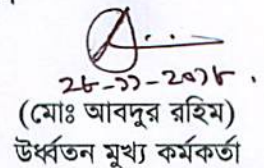 ২৮-১১-২০১৮.
(মোঃ আবদুর রহিম)
উর্ধ্বতন মুখ্য কর্মকর্তা